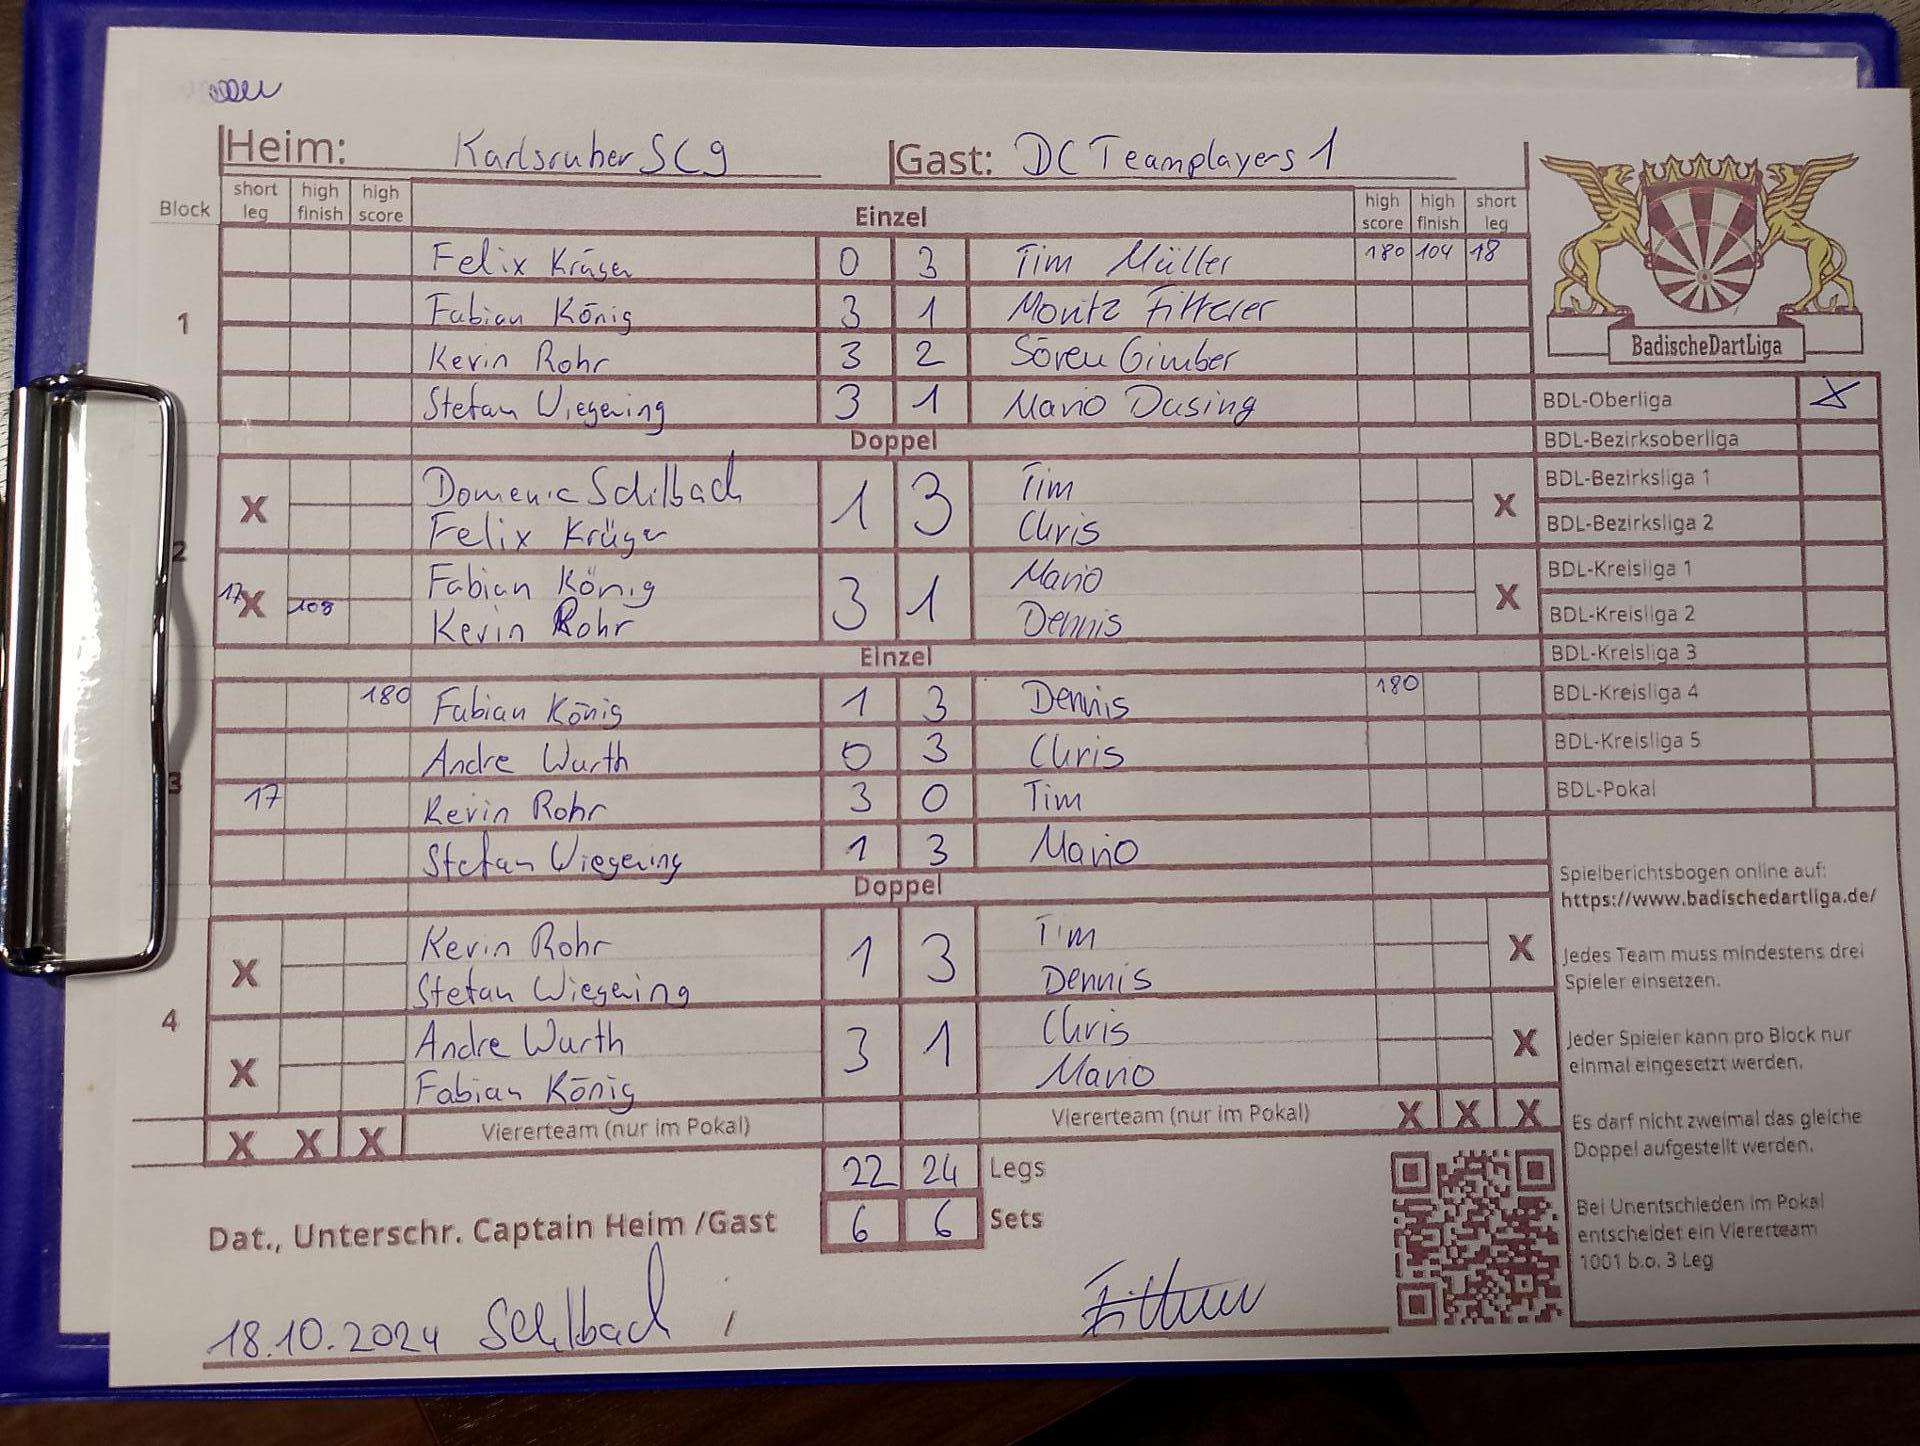 Heim: Karlsruher SC 9 Gast: DC Teamplayers 1
Block short leg high finish high score Einzel high score high finish short leg
Felix Krüger 0 3 Tim Müller 180 104 18
1 Fabian König 3 1 Moritz Fitterer
Kevin Rohr 3 2 Sören Gimber
Stefan Wiegering 3 1 Mario Dusing
Doppel
Domenic Schilbach Tim
X 1 3 X
Felix Krüger Chris
2
Fabian König Mario
17 X 108 3 1 X
Kevin Rohr Dennis
Einzel
180 Fabian König 1 3 Dennis 180
Andre Wurth 0 3 Chris
3
17 Kevin Rohr 3 0 Tim
Stefan Wiegering 1 3 Mario
Doppel
Kevin Rohr Tim
X 1 3 X
Stefan Wiegering Dennis
4
Andre Wurth Chris
X 3 1 X
Fabian König Mario
X X X Viererteam (nur im Pokal) Viererteam (nur im Pokal) X X X
22 24 Legs
6 6 Sets
Dat., Unterschr. Captain Heim /Gast
18.10.2024 Schilbach / Fitterer
BadischeDartLiga
BDL-Oberliga X
BDL-Bezirksoberliga
BDL-Bezirksliga 1
BDL-Bezirksliga 2
BDL-Kreisliga 1
BDL-Kreisliga 2
BDL-Kreisliga 3
BDL-Kreisliga 4
BDL-Kreisliga 5
BDL-Pokal
Spielberichtsbogen online auf:
https://www.badischedartliga.de/
Jedes Team muss mindestens drei
Spieler einsetzen.
Jeder Spieler kann pro Block nur
einmal eingesetzt werden.
Es darf nicht zweimal das gleiche
Doppel aufgestellt werden.
Bei Unentschieden im Pokal
entscheidet ein Viererteam
1001 b.o. 3 Leg